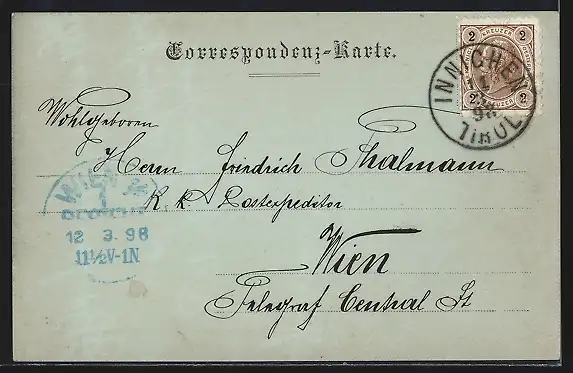 Correspondenz-Karte.
2 KREUZER 2
2 KREUZER 2
INNICHEN
TIROL
Wohlgeboren
Herrn Friedrich Thalmann
k. k. Postexpeditor
Wien
Telegraf Central St
WIEN
1
12 3. 98
11½V-1N